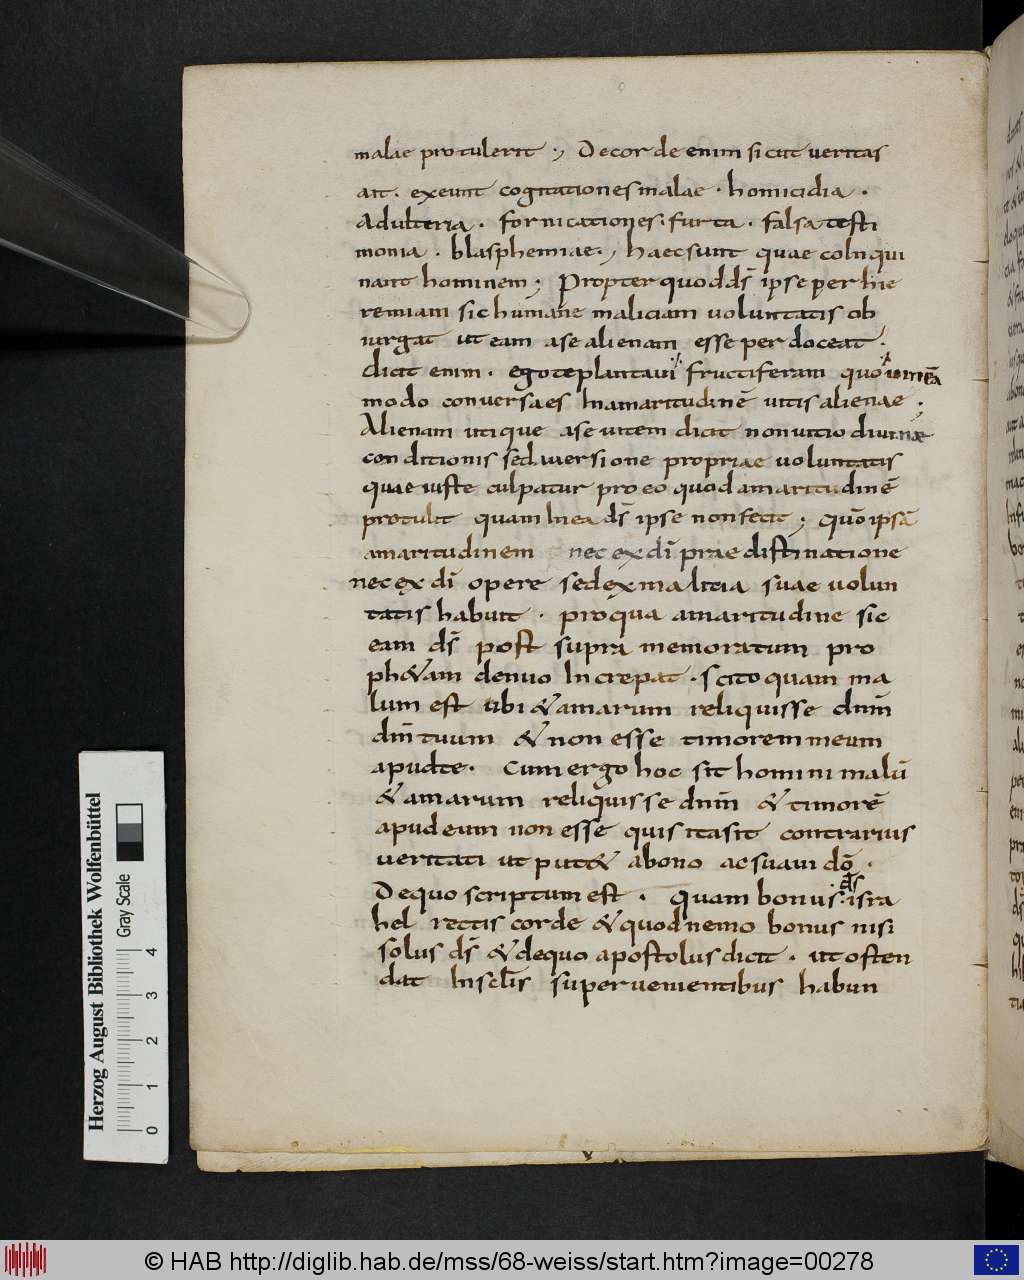 malae protulerit ; De corde enim sicut veritas
ait · exeunt cogitationes malae · homicidia ·
Adulteria · fornicationes · furta · falsa testi
monia · blasphemiae · ; haec sunt quae coinqui
nant hominem ; Propter quod d̄s ipse per hie
remiam sic humane maliciam voluntatis ob
iurgat ut eam a se alienam esse per doceat ·
dicit enim · ego te plantavi fructiferam quo
modo conversa es In amaritudinē vitis alienae ;
Alienam utique a se vitem dicit non vitio divinae
conditionis sed aversione propriae voluntatis
quae iuste culpatur pro eo quod amaritudinē
protulit quam In ea d̄s ipse non fecit ; Quō ipsā
amaritudinem nec ex dī praedistinatione
nec ex dī opere sed ex malitia suae volun
tatis habuit · pro qua amaritudine sic
eam d̄s post supra memoratum pro
ph&am denuo Increpat · scito quam ma
lum est tibi & amarum reliquisse dnm̄
dnm̄ tuum & non esse timorem meum
apud te · Cum ergo hoc sit homini malū
& amarum reliquisse dnm̄ & timorē
apud eum non esse quis ita sit contrarius
veritati ut put& a bono ac suavi dō ·
De quo scriptum est · Quam bonus d̄s isra
hel rectis corde & quod nemo bonus nisi
solus d̄s & de quo apostolus dicit · ut osten
dat In sclīs supervenientibus habun
Herzog August Bibliothek Wolfenbüttel
Gray Scale
0 1 2 3 4
© HAB http://diglib.hab.de/mss/68-weiss/start.htm?image=00278